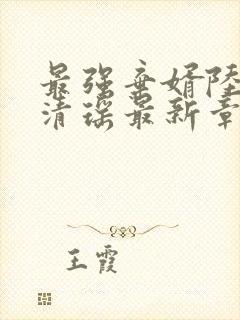 最强弃婿陆
清瑶最新章
王霞